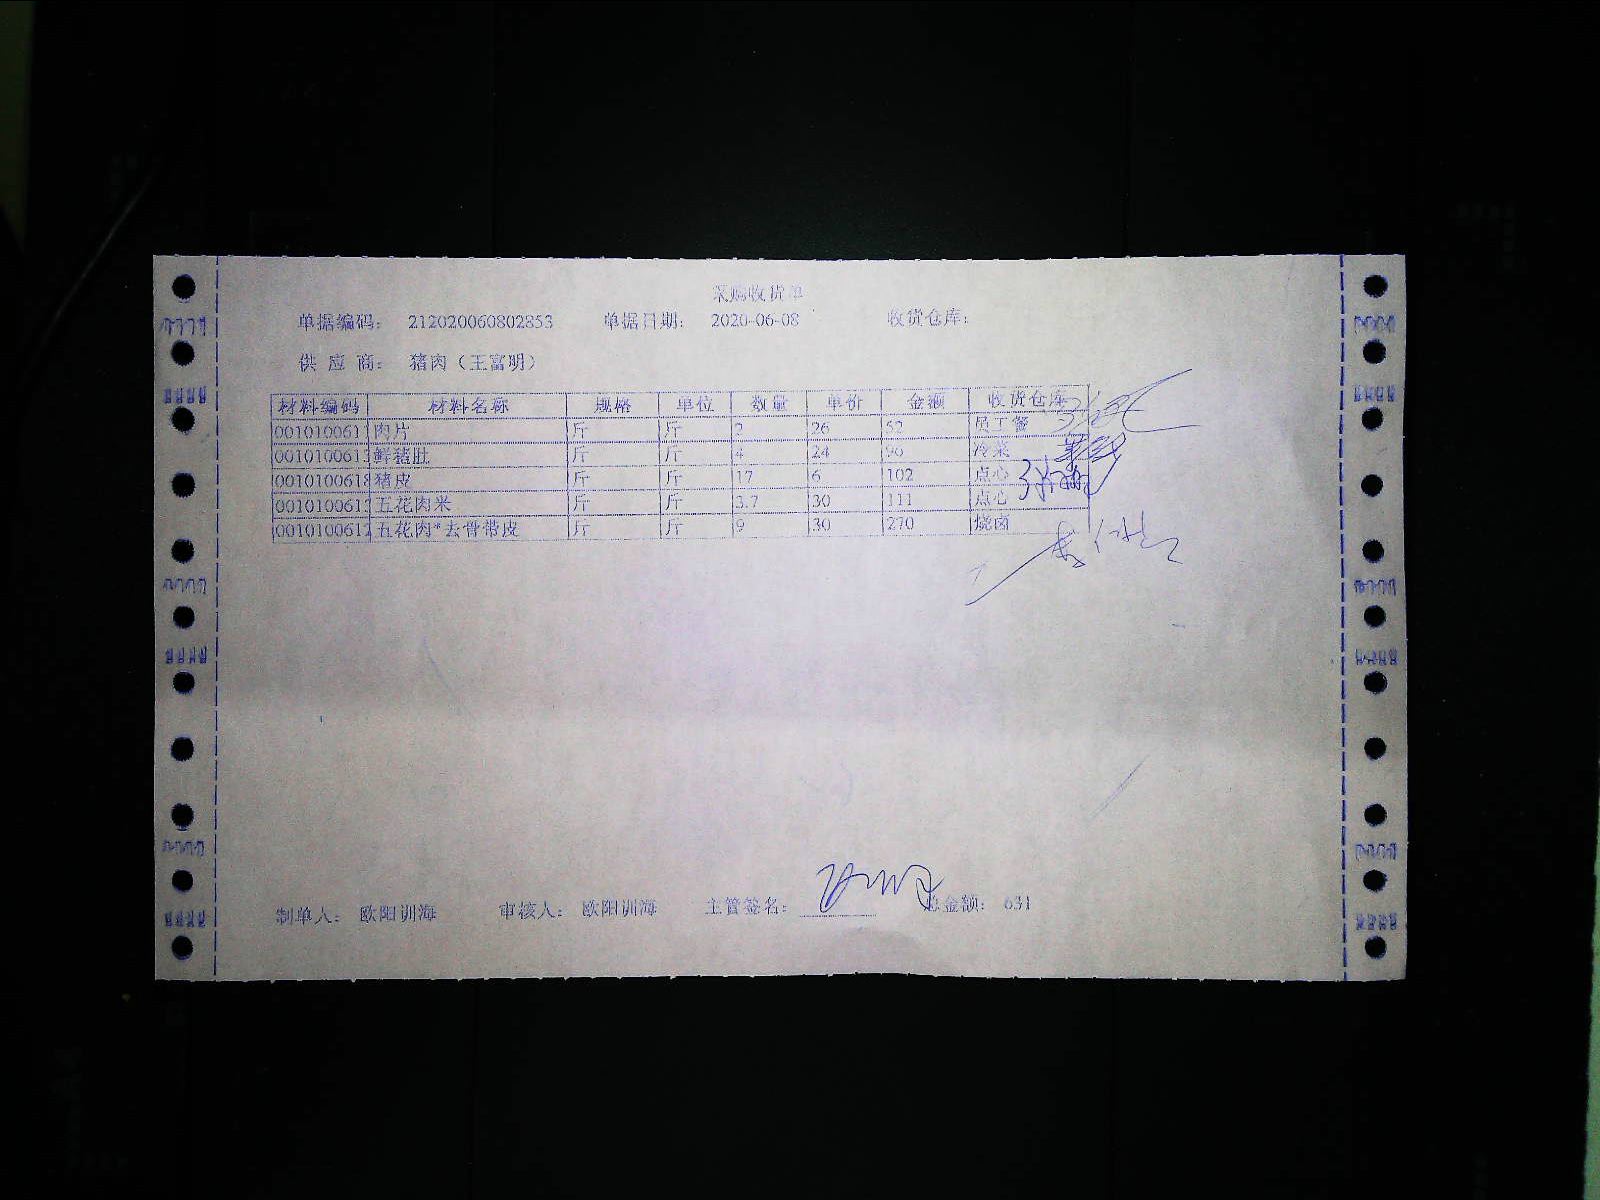 采购收货单
单据编码： 212020060802853 单据日期： 2020-06-08 收货仓库：
供 应 商： 猪肉（王富明）
材料编码 材料名称 规格 单位 数量 单价 金额 收货仓库
0010100611 肉片 斤 斤 2 26 52 员工餐
0010100613 鲜猪肚 斤 斤 4 24 96 冷菜
0010100618 猪皮 斤 斤 17 6 102 点心
0010100613 五花肉米 斤 斤 3.7 30 111 点心
0010100612 五花肉*去骨带皮 斤 斤 9 30 270 烧卤
制单人： 欧阳训海 审核人： 欧阳训海 主管签名： 总金额： 631